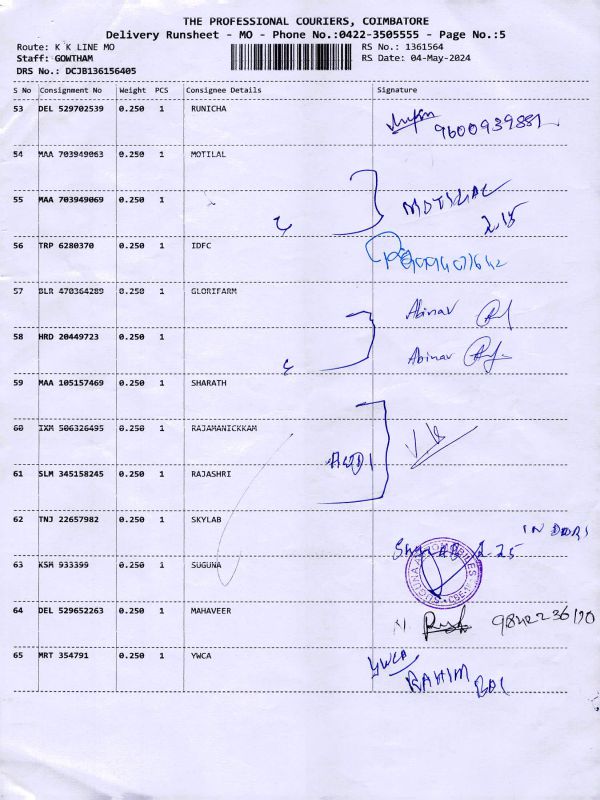 THE PROFESSIONAL COURIERS, COIMBATORE
Delivery Runsheet - MO - Phone No.:0422-3505555 - Page No.:5
Route: K K LINE MO
RS No.: 1361564
Staff: GOWTHAM
RS Date: 04-May-2024
DRS No.: DCJB136156405
S No Consignment No Weight PCS Consignee Details Signature
53 DEL 529702539 0.250 1 RUNICHA
9600939881
54 MAA 703949063 0.250 1 MOTILAL
55 MAA 703949069 0.250 1
MOTILAL
2.15
56 TRP 6280370 0.250 1 IDFC
57 BLR 470364289 0.250 1 GLORIFARM
Abinav
58 HRD 20449723 0.250 1
Abinav
59 MAA 105157469 0.250 1 SHARATH
60 IXM 506326495 0.250 1 RAJAMANICKKAM
AUDI
61 SLM 345158245 0.250 1 RAJASHRI
62 TNJ 22657982 0.250 1 SKYLAB
2.25
63 KSM 933399 0.250 1 SUGUNA
64 DEL 529652263 0.250 1 MAHAVEER
65 MRT 354791 0.250 1 YWCA
YWCA
RAHIM